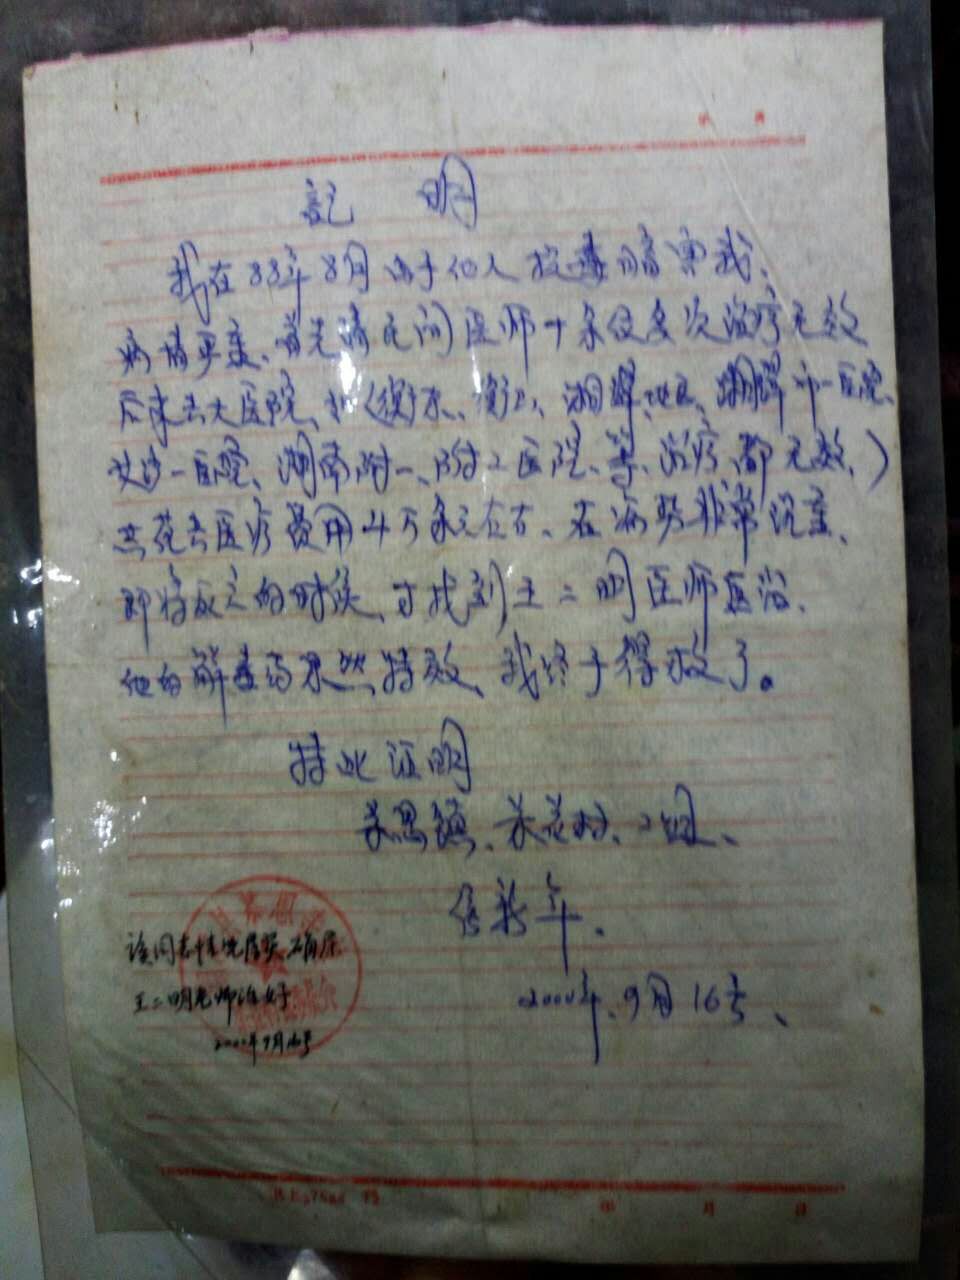 年 月
记 明
我在88年8月由于仇人投毒暗害我、
病情严重、首先请民间医师十余位多次治疗无效
后来去大医院、(衡东、衡山、湘潭地区、湘潭市一医院、
一医院、湖南附一、附二医院、等、治疗都无效、)
共花去医疗费用4万余元左右、在病势非常沉重、
即将死亡的时候、才找到王二明医师医治、
他的解毒药果然特效、我终于得救了。
特此证明
荣恩镇、荣花村、二组、
年、
该同志情况属实确系
王二明老师治好
2000年9月16号
2000年、9月16号、
年 月 日